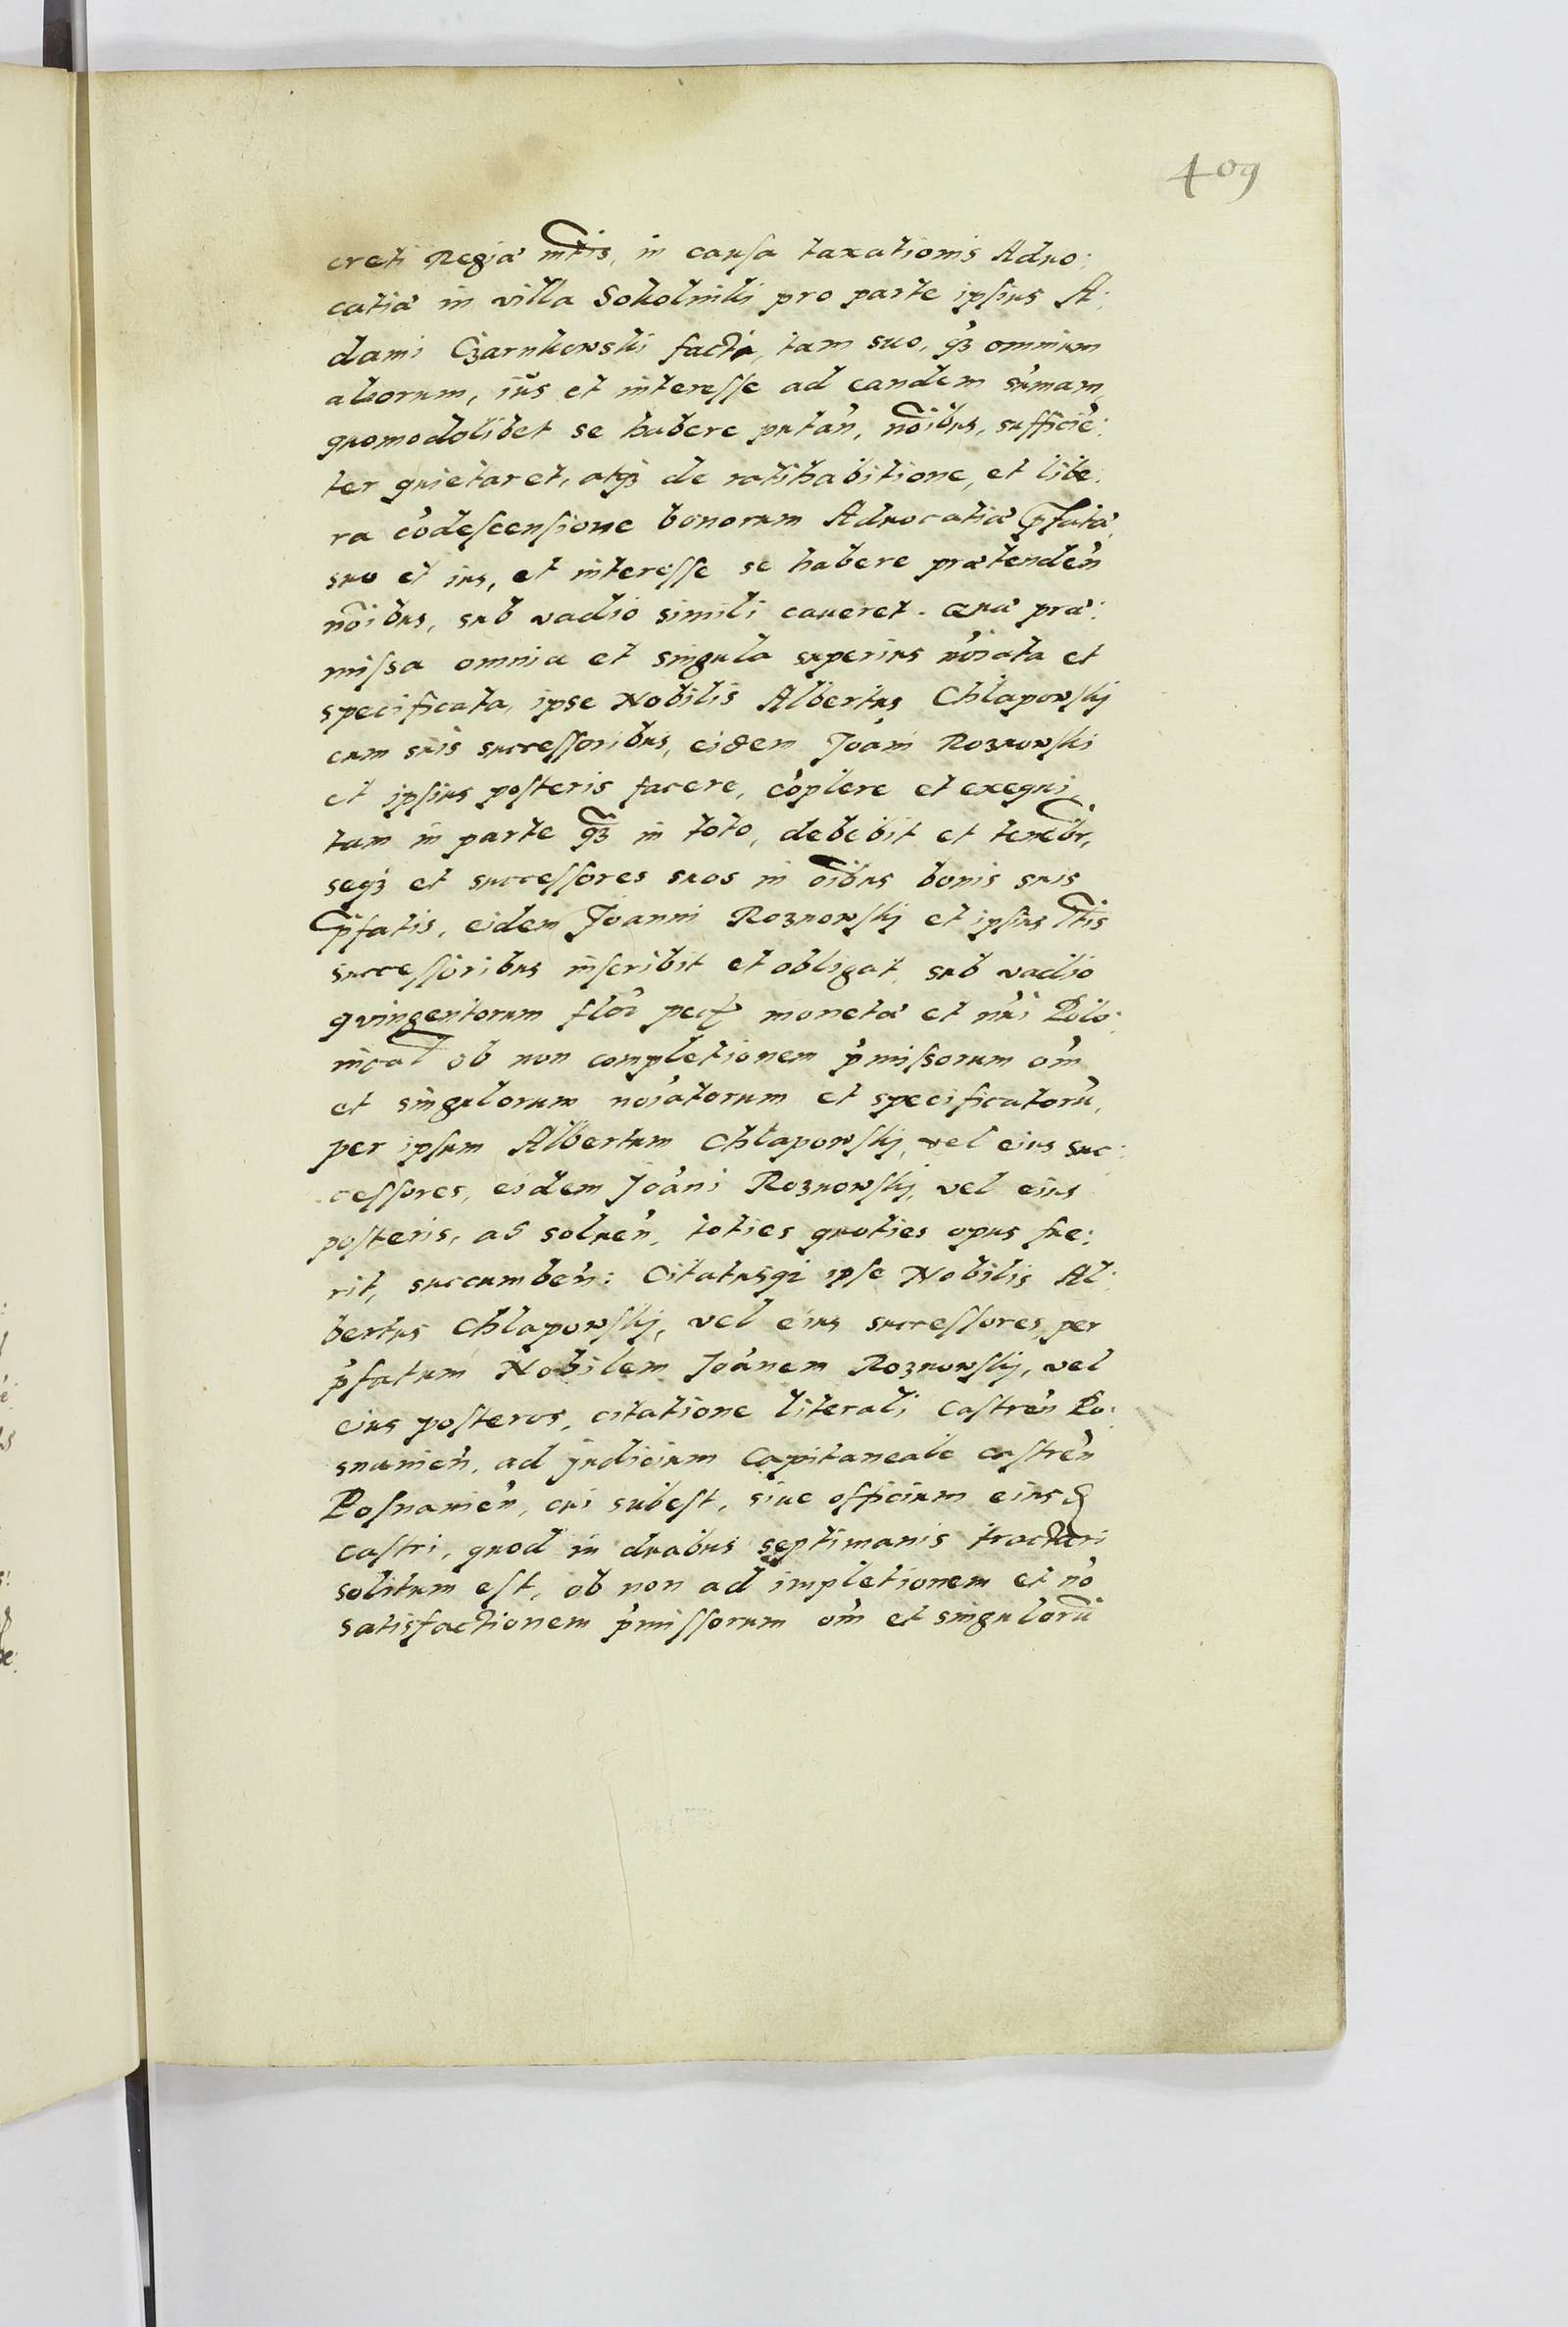 409
creti Regiæ mtis, in causa taxationis Aduo:
catiæ in villa Sokolniki pro parte ipsius A:
dami Czarnkowski facta, tam suo, q3 omnium
aliorum, ius et interesse ad eandem sumam,
quomodolibet se habere putan, noibus, sufficie:
ter quietaret, atq3 de ratihabitione, et libe:
ra codescensione bonorum Aduocatiæ pfatæ,
suo et ius, et interesse se habere prætenden
noibus, sub vadio simili caueret. Quæ præ:
missa omnia et singula superius noiata et
specificata, ipse Nobilis Albertus Chlapowskj
cum suis successoribus, eidem Joani Roznowski
et ipsius posteris facere, coplere et exequi,
tam in parte q3 in toto, debebit et tenebr,
seq3 et successores suos in oibus bonis suis
pfatis, eidem Joanni Roznowskj et ipsius ltis
successoribus inscribit et obligat, sub vadio
quingentorum flor pec monetæ et nri Polo:
nical ob non completionem pmissorum om
et singulorum noiatorum et specificatoru,
per ipsum Albertum Chlapowskj, vel eius suc:
cessores, eidem Joani Roznowskj, vel eius
posteris, as soluen, toties quoties opus fue:
rit, succumben: Citatusq3 ipse Nobilis Al:
bertus Chlapowskj, vel eius successores, per
pfatum Nobilem Joanem Roznowskj, vel
eius posteros, citatione literali Castren Po:
snanien, ad judicium Capitaneale castren
Posnanien, cui subest, siue officium eiusd
castri, quod in duabus septimanis tractari
solitum est, ob non ad impletionem et no
satisfactionem pmissorum om et singuloru